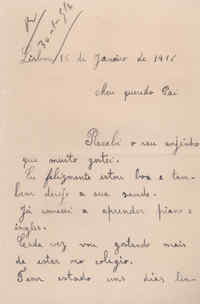 Lisboa 15 de Janeiro de 1915
Meu querido Pai
Recebi o seu
que muito gostei.
Eu felizmente estou boa e tam-
bem desejo a sua saude.
Já comecei a aprender piano e
inglez.
Cada vez vou gostando mais
de estar no colegio.
Tem estado uns dias lin-